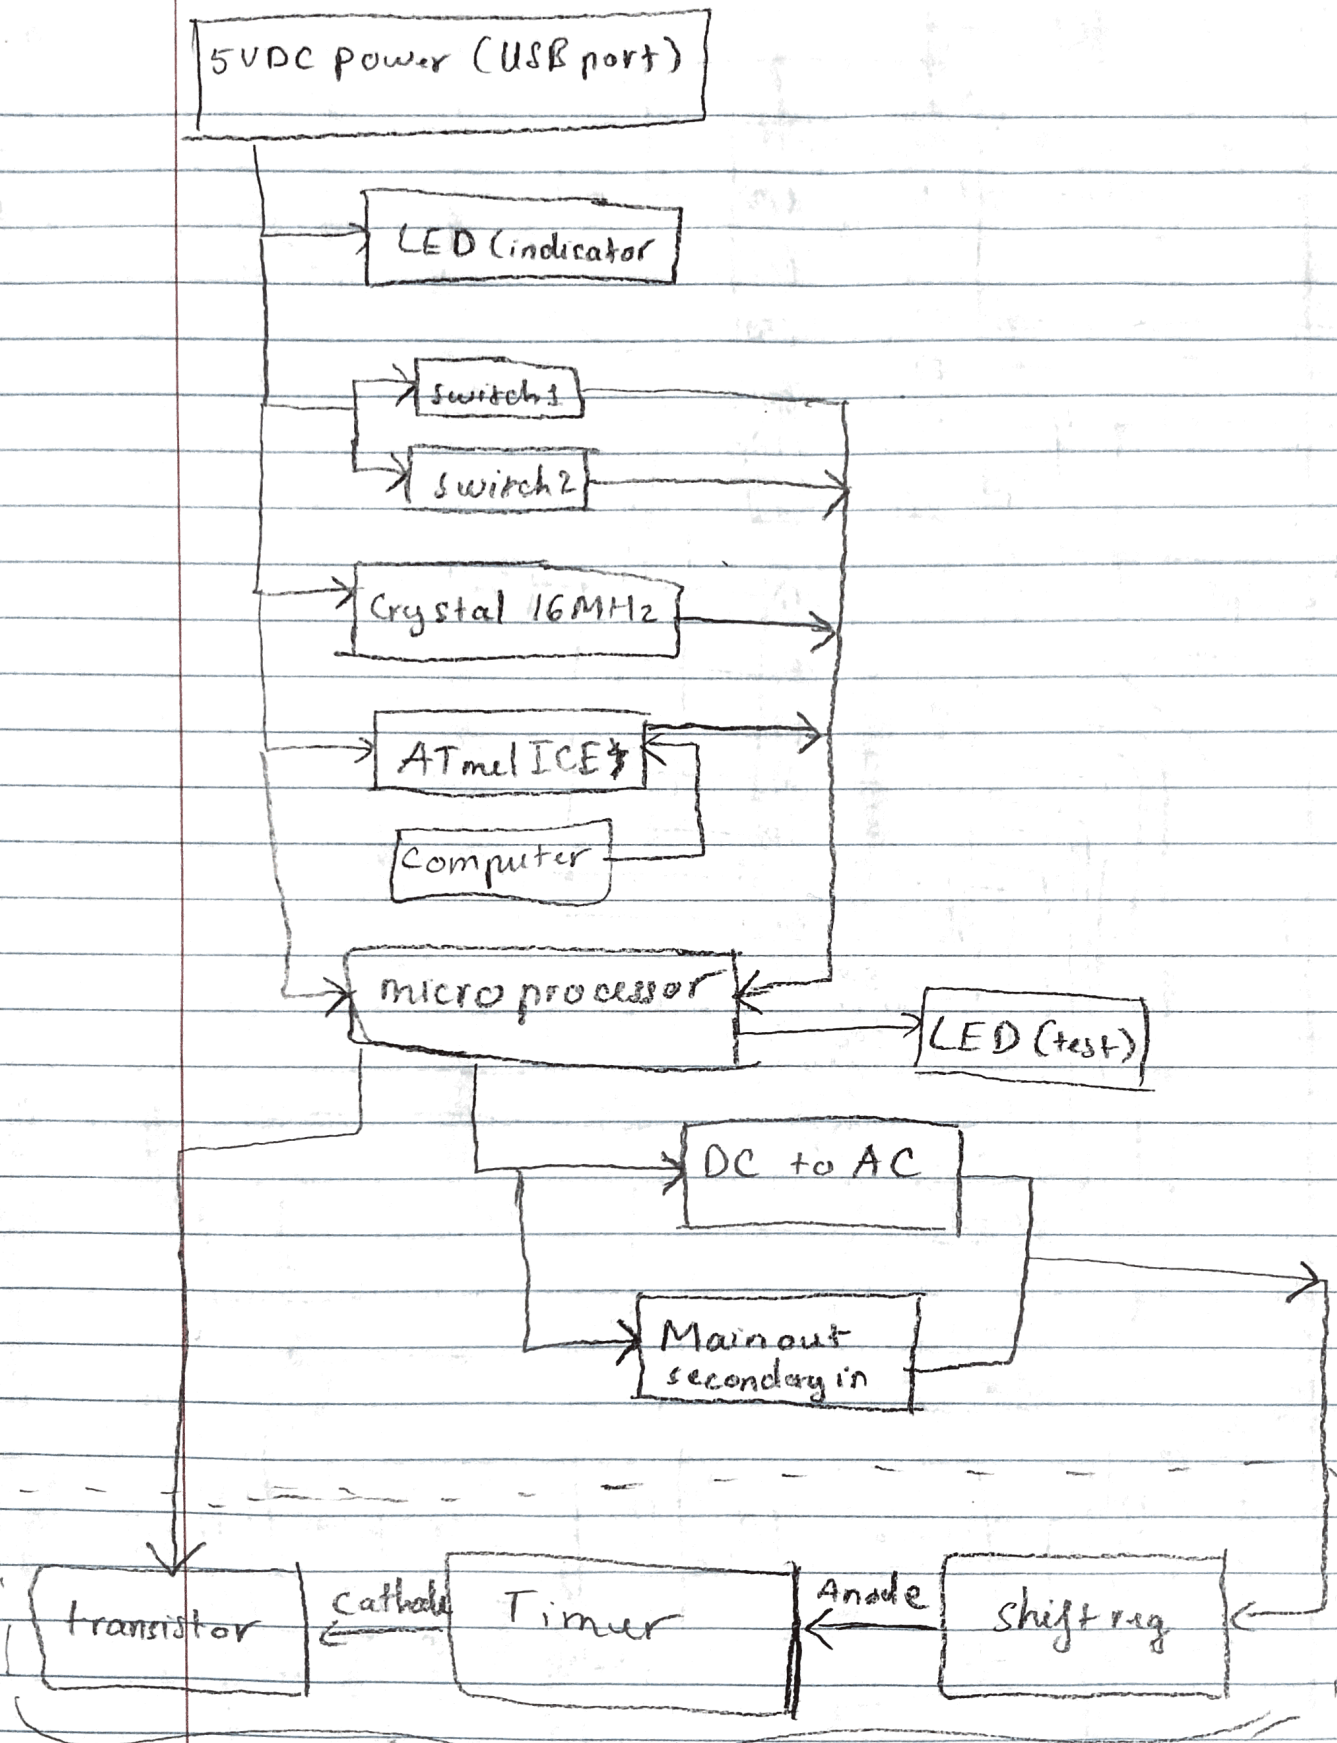 5VDC power (USB port)
LED (indicator
switch1
switch2
Crystal 16MHz
ATmel ICE
computer
microprocessor
LED (test)
DC to AC
Main out
secondary in
transistor
Cathode
Timer
Anode
shift reg